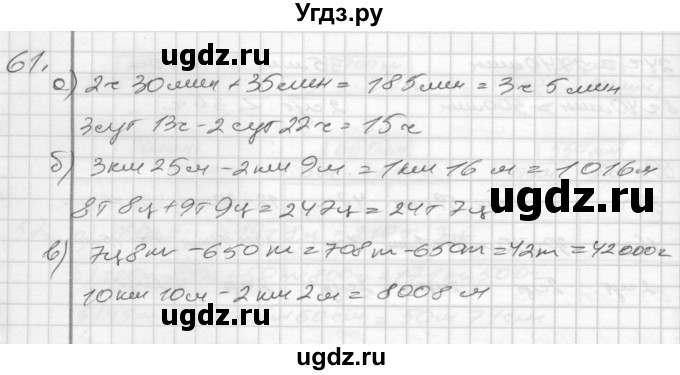 Угдз.ру
ugdz.ru
61.
ugdz.ru
а) 2ч 30мин + 35мин = 185мин = 3ч 5мин
3сут 13ч - 2сут 22ч = 15ч
ugdz.ru
б) 3км 25м - 2км 9м = 1км 16м = 1016м
8т 8ц + 9т 9ц = 247ц = 24т 7ц
ugdz.ru
в) 7ц 8т - 650т = 708т - 650т = 42т = 42000г
10км 10м - 2км 2м = 8008м
ugdz.ru
ugdz.ru